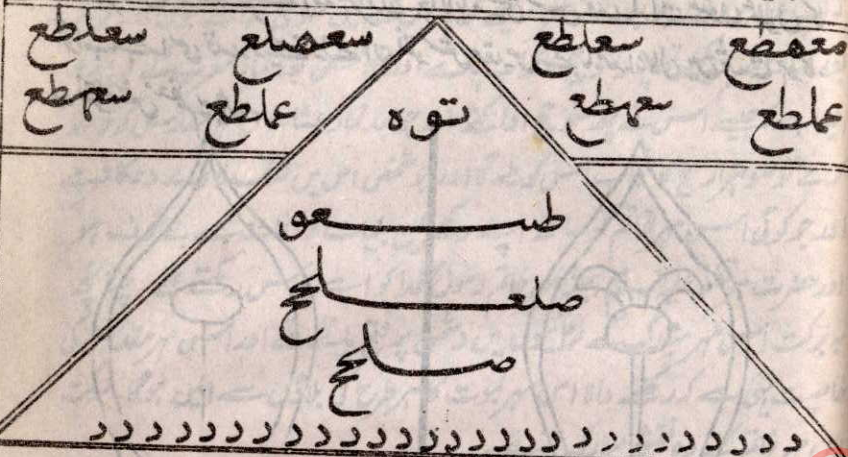 معهطع سعلطع سعصلع سعلطع
عملطع سعهطع عملطع سعهطع
توه
طسعو
صلعلحح
صلحح
د د د د د د د د د د د د د د د د د د د د د د د د د د د